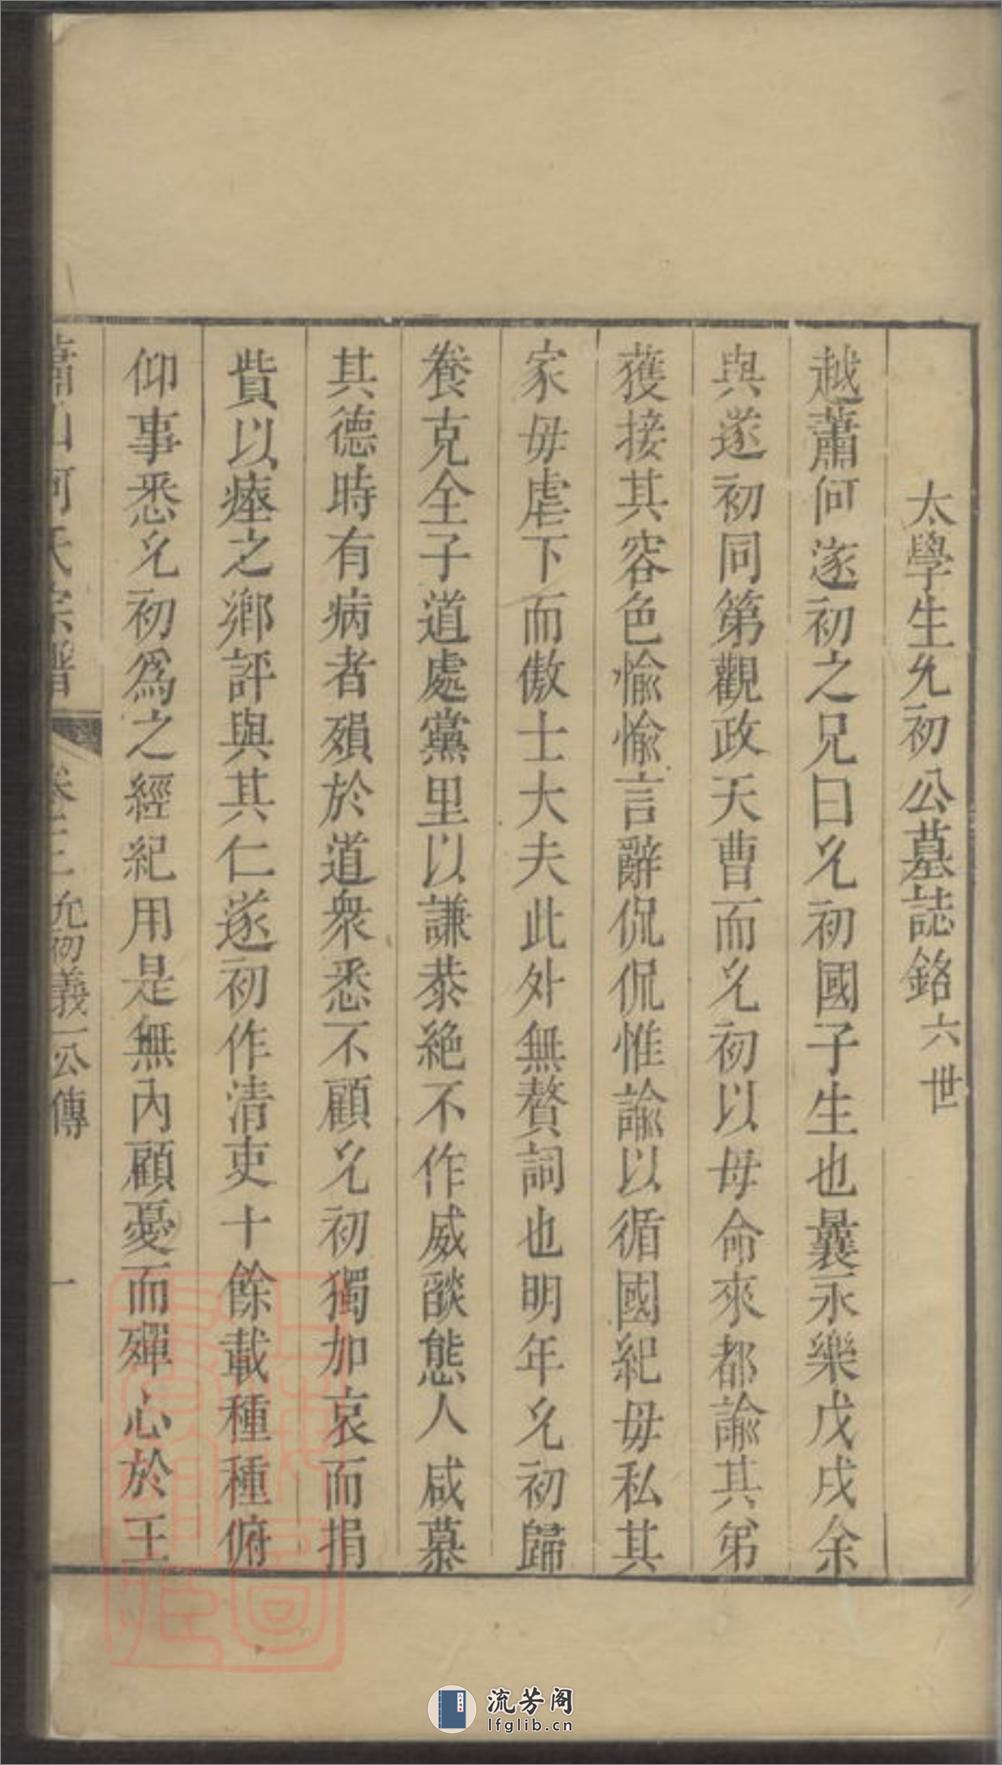 太學生允初公墓誌銘六世
越蕭何遂初之兄曰允初國子生也曩永樂戊戌余
與遂初同第觀政天曹而允初以母命來都諭其弟
獲接其容色愉愉言辭侃侃惟諭以循國紀毋私其
家毋虐下而傲士大夫此外無贅詞也明年允初歸
養克全子道處黨里以謙恭絕不作威燄態人咸慕
其德時有病者殞於道衆悉不顧允初獨加哀而捐
貲以瘞之鄉評與其仁遂初作清吏十餘載種種俯
仰事悉允初爲之經紀用是無內顧憂而殫心於王
蕭山何氏宗譜 卷三 允初義一公傳 一
流芳阁
lfglib.cn